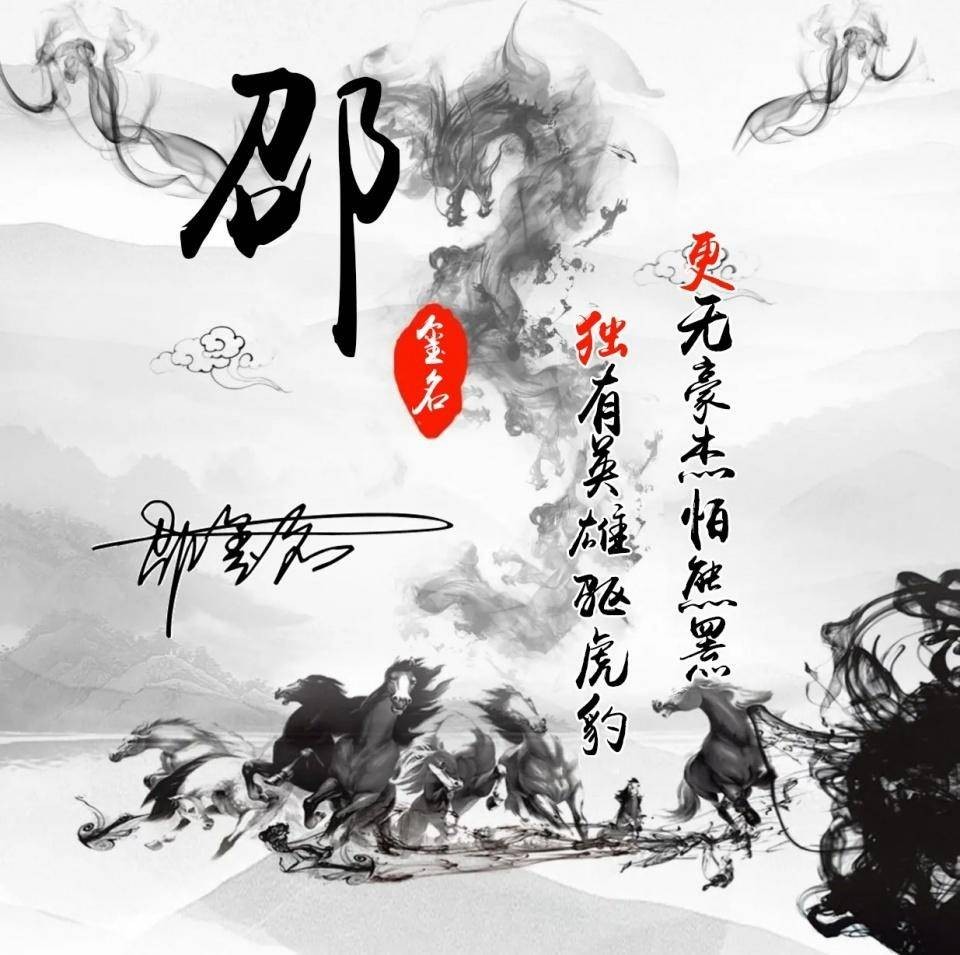 邵
玺名
邵玺名
独有英雄驱虎豹
更无豪杰怕熊罴